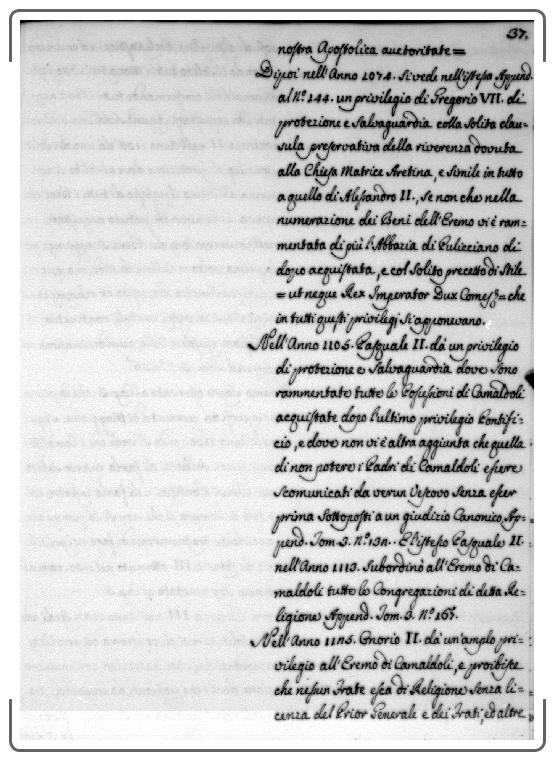 37.
nostra Apostolica auctoritate =
Dipoi nell'Anno 1074. si vede nell'istesso Append.
al Nº. 144. un privilegio di Gregorio VII. di
protezione e Salvaguardia colla solita clau=
sula preservativa della riverenza dovuta
alla Chiesa Matrice Aretina, e simile in tutto
a quello di Alessandro II., se non che nella
numerazione dei Beni dell'Eremo vi è ram=
mentata di più l'Abbazia di Pulicciano di
dopo acquistata, e col solito precetto di Stile
= ut neque Rex Imperator Dux Comes = che
in tutti questi privilegj si apponevano.
Nell'Anno 1105. Pasquale II. dà un privilegio
di protezione e Salvaguardia dove sono
rammentate tutte le Possessioni di Camaldoli
acquistate dopo l'ultimo privilegio Pontifi=
cio, e dove non vi è altra aggiunta che quella
di non potere i Padri di Camaldoli essere
scomunicati da verun Vescovo senza esser
prima sottoposti a un giudizio Canonico Ap=
pend. Tom. 3. Nº. 137. . E l'istesso Pasquale II.
nell'Anno 1113. subordinò all'Eremo di Ca=
maldoli tutte le Congregazioni di detta Re=
ligione Append. Tom. 3. Nº. 165.
Nell'Anno 1125. Onorio II. dà un'amplo pri=
vilegio all'Eremo di Camaldoli, e proibisce
che nessun Frate esca di Religione senza li=
cenza del Prior Generale e dei Frati, ed altre